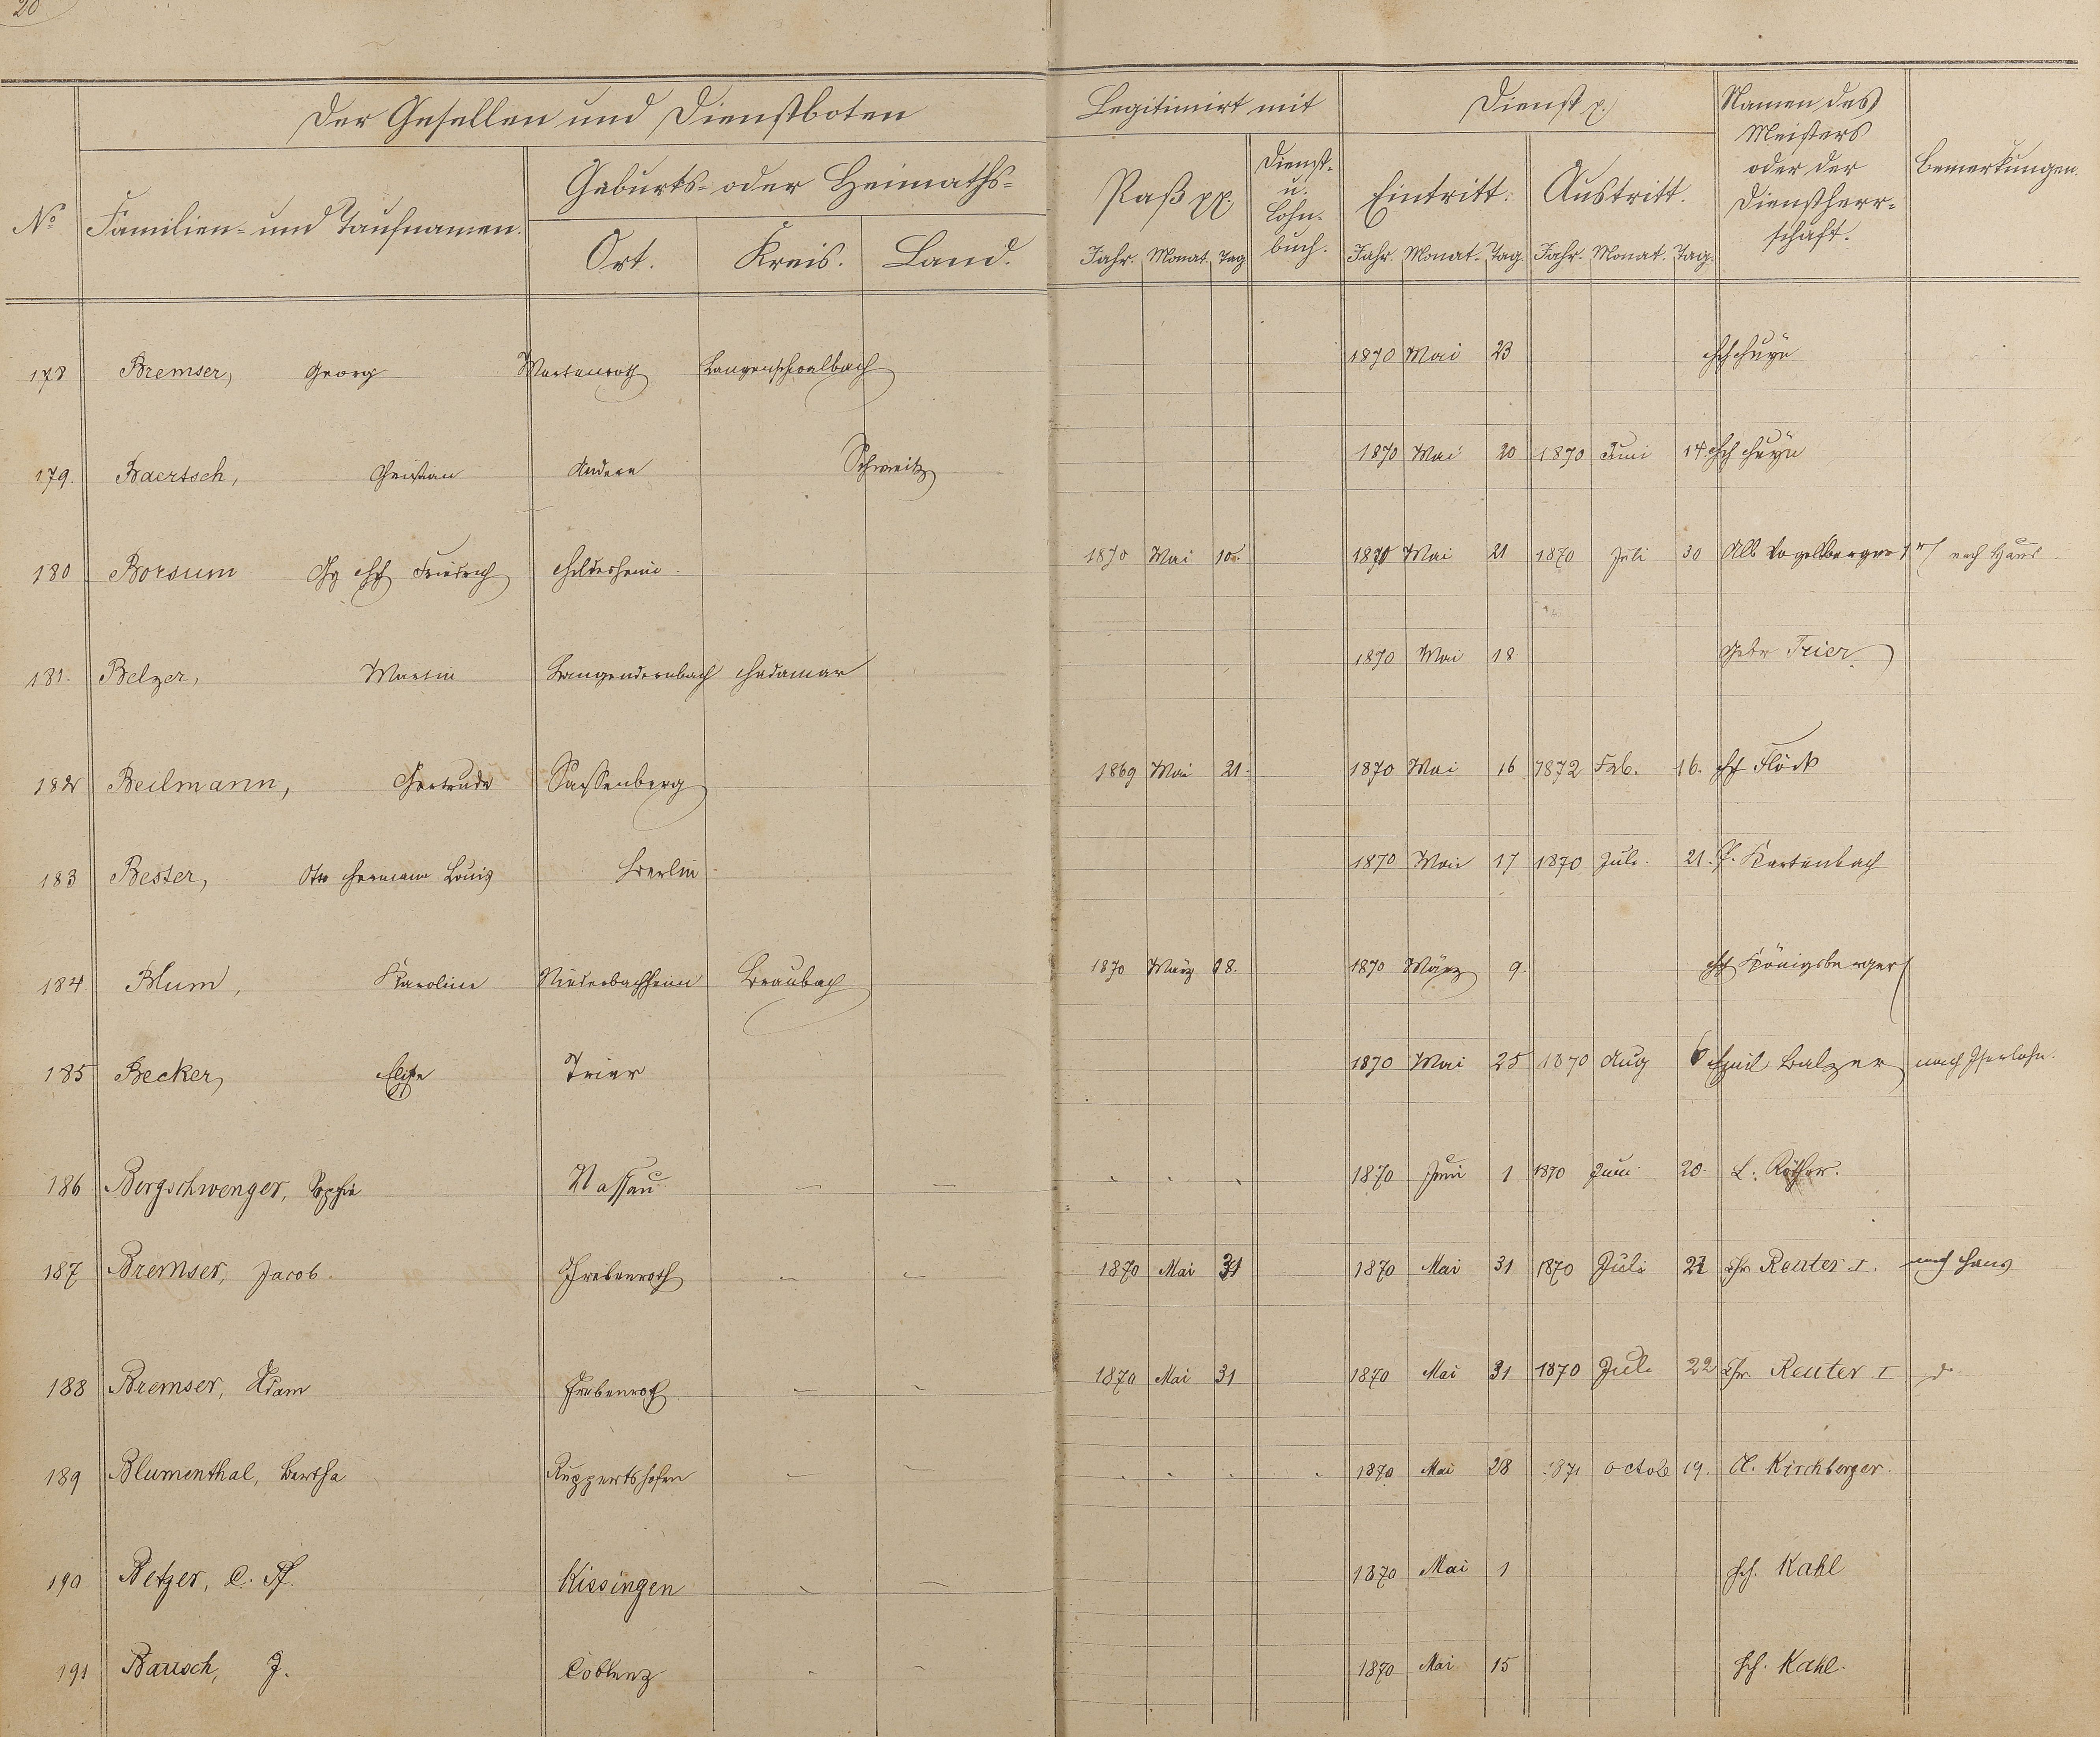 20
Der Gesellen und Dienstboten
Legitimirt mit
Dienst p.
Namen des Meisters oder der Dienstherrschaft.
Bemerkungen.
No
Familien- und Taufnamen.
Geburts- oder Heimaths-
Ort. Kreis. Land.
Paß pp.
Dienst- u. Lohn-buch.
Eintritt. Austritt.
Jahr. Monat. Tag Jahr. Monat. Tag. Jahr. Monat. Tag.
178 Bremser, Georg Langenschwalbach 1870 Mai 23
179. Baertsch, Christian Andeer Schweitz 1870 Mai 20 1870 Juni 14
180 Borsum Friedrich Hildesheim. 1870 Mai 10. 1870 Mai 21 1870 Juli 30 Alb Vogelsberger nach Haus
181. Belzer, Martin Langendernbach Hadamar 1870 Mai 18. Gebr Trier
182 Beilmann, Gertrude Sassenberg 1869 Mai 21. 1870 Mai 16 1872 Feb. 16. Flöck
183 Bester, Otto Hermann Louis Berlin 1870 Mai 17 1870 Juli. 21. Kartenbach
184. Blum, Karoline Niederbachheim Braubach 1870 März 8. 1870 März 9. Königsberger
185 Becker, Elise Trier 1870 Mai 25 1870 Aug 6 Emil Balzer nach Iserlohn.
186 Bergschwenger, Sophie Nassau — — 1870 Juni 1 1870 Juni 20 L.
187 Bremser, Jacob. — — 1870 Mai 31 1870 Mai 31 1870 Juli 22 Chr. Reuter I. nach Haus
188 Bremser, Adam — — 1870 Mai 31 1870 Mai 31 1870 Juli 22 Chr. Reuter I do
189 Blumenthal, Bertha Ruppertshofen — — 1870 Mai 28 1871 Octob 19. A. Kirchberger.
190 Betzer, C. Kissingen — — 1870 Mai 1 Hch. Kahl
191 Bausch, J. Coblenz 1870 Mai 15 Hch. Kahl.